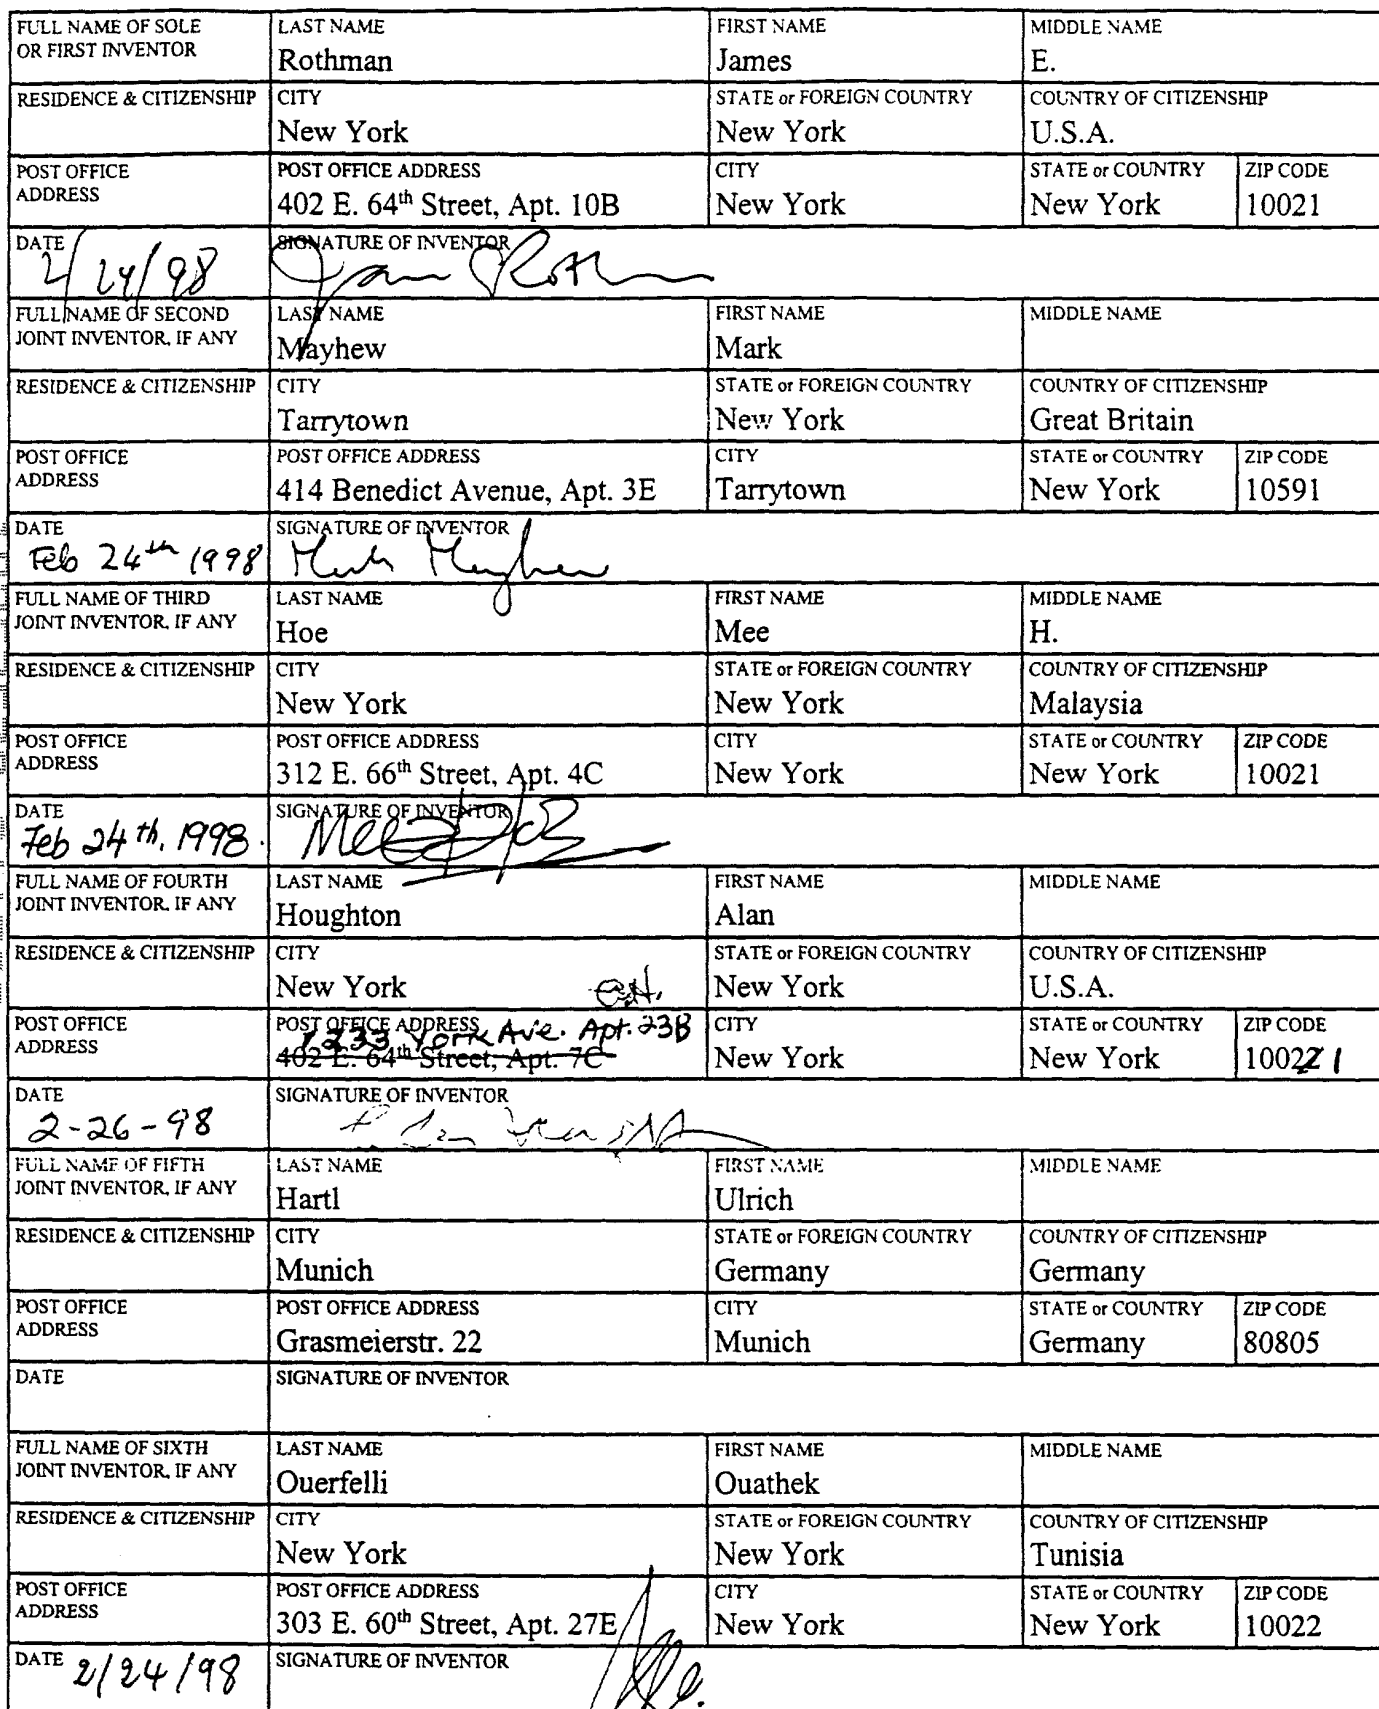 FULL NAME OF SOLE OR FIRST INVENTOR
LAST NAME Rothman
FIRST NAME James
MIDDLE NAME E.
RESIDENCE & CITIZENSHIP
CITY New York
STATE or FOREIGN COUNTRY New York
COUNTRY OF CITIZENSHIP U.S.A.
POST OFFICE ADDRESS
POST OFFICE ADDRESS 402 E. 64th Street, Apt. 10B
CITY New York
STATE or COUNTRY New York
ZIP CODE 10021
DATE 2/24/98
SIGNATURE OF INVENTOR
FULL NAME OF SECOND JOINT INVENTOR, IF ANY
LAST NAME Mayhew
FIRST NAME Mark
MIDDLE NAME
RESIDENCE & CITIZENSHIP
CITY Tarrytown
STATE or FOREIGN COUNTRY New York
COUNTRY OF CITIZENSHIP Great Britain
POST OFFICE ADDRESS
POST OFFICE ADDRESS 414 Benedict Avenue, Apt. 3E
CITY Tarrytown
STATE or COUNTRY New York
ZIP CODE 10591
DATE Feb 24th 1998
SIGNATURE OF INVENTOR Mark Mayhew
FULL NAME OF THIRD JOINT INVENTOR, IF ANY
LAST NAME Hoe
FIRST NAME Mee
MIDDLE NAME H.
RESIDENCE & CITIZENSHIP
CITY New York
STATE or FOREIGN COUNTRY New York
COUNTRY OF CITIZENSHIP Malaysia
POST OFFICE ADDRESS
POST OFFICE ADDRESS 312 E. 66th Street, Apt. 4C
CITY New York
STATE or COUNTRY New York
ZIP CODE 10021
DATE Feb 24th, 1998.
SIGNATURE OF INVENTOR
FULL NAME OF FOURTH JOINT INVENTOR, IF ANY
LAST NAME Houghton
FIRST NAME Alan
MIDDLE NAME
RESIDENCE & CITIZENSHIP
CITY New York
STATE or FOREIGN COUNTRY New York
COUNTRY OF CITIZENSHIP U.S.A.
POST OFFICE ADDRESS
POST OFFICE ADDRESS 1233 York Ave. Apt. 23B
402 E. 64th Street, Apt. 7C
CITY New York
STATE or COUNTRY New York
ZIP CODE 10021
DATE 2-26-98
SIGNATURE OF INVENTOR
FULL NAME OF FIFTH JOINT INVENTOR, IF ANY
LAST NAME Hartl
FIRST NAME Ulrich
MIDDLE NAME
RESIDENCE & CITIZENSHIP
CITY Munich
STATE or FOREIGN COUNTRY Germany
COUNTRY OF CITIZENSHIP Germany
POST OFFICE ADDRESS
POST OFFICE ADDRESS Grasmeierstr. 22
CITY Munich
STATE or COUNTRY Germany
ZIP CODE 80805
DATE
SIGNATURE OF INVENTOR
FULL NAME OF SIXTH JOINT INVENTOR, IF ANY
LAST NAME Ouerfelli
FIRST NAME Ouathek
MIDDLE NAME
RESIDENCE & CITIZENSHIP
CITY New York
STATE or FOREIGN COUNTRY New York
COUNTRY OF CITIZENSHIP Tunisia
POST OFFICE ADDRESS
POST OFFICE ADDRESS 303 E. 60th Street, Apt. 27E
CITY New York
STATE or COUNTRY New York
ZIP CODE 10022
DATE 2/24/98
SIGNATURE OF INVENTOR